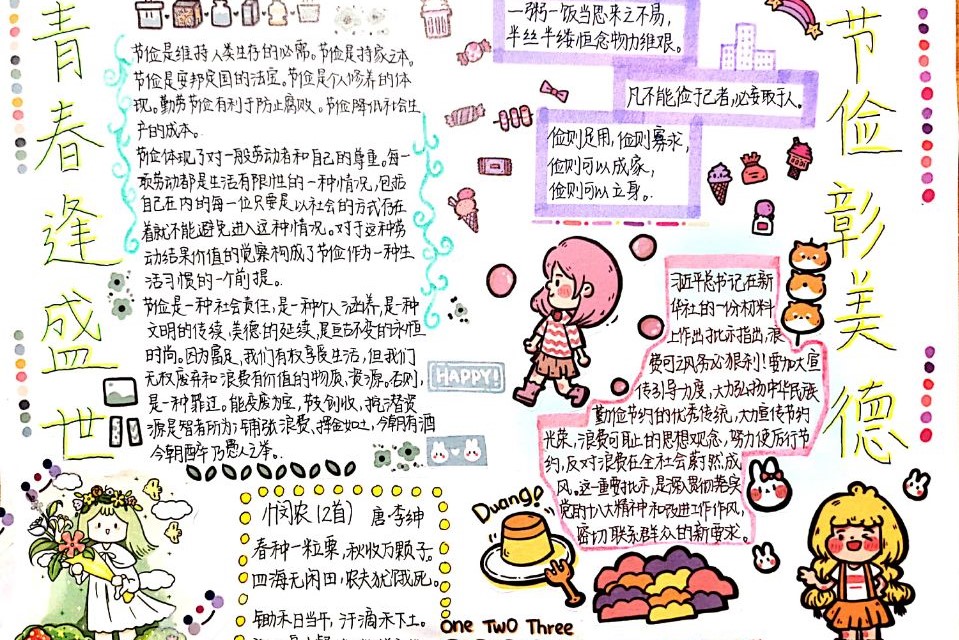 青春逢盛世
节俭是维持人类生存的必需。节俭是持家之本。
节俭是安邦定国的法宝。节俭是个人修养的体
现。勤劳节俭有利于防止腐败。节俭降低社会生
产的成本。
节俭体现了对一般劳动者和自己的尊重。每一
项劳动都是生活有限性的一种情况，包括
自己在内的每一位只要是以社会的方式存在
着就不能避免进入这种情况。对于这种劳
动结果价值的觉察构成了节俭作为一种生
活习惯的一个前提。
节俭是一种社会责任，是一种个人涵养，是一种
文明的传续，美德的延续，是亘古不变的永恒
时尚。因为富足，我们有权享受生活，但我们
无权废弃和浪费有价值的物质、资源。否则，
是一种罪过。能变废为宝，节支创收，挖潜资
源是智者所为；铺张浪费、挥金如土，今朝有酒
今朝醉乃愚人之举。
悯农(2首) 唐·李绅
春种一粒粟，秋收万颗子。
四海无闲田，农夫犹饿死。
锄禾日当午，汗滴禾下土。
一粥一饭当思来之不易，
半丝半缕恒念物力维艰。
凡不能俭于己者，必妄取于人。
俭则足用，俭则寡求，
俭则可以成家，
俭则可以立身。
HAPPY!
习近平总书记在新
华社的一份材料
上作出批示指出，浪
费之风务必狠刹！要加大宣
传引导力度，大力弘扬中华民族
勤俭节约的优秀传统，大力宣传节约
光荣、浪费可耻的思想观念，努力使厉行节
约，反对浪费在全社会蔚然成
风。这一重要批示，是深入贯彻落实
党的十八大精神和改进工作作风，
密切联系群众的新要求。
Duang!
one Two Three
节俭彰美德